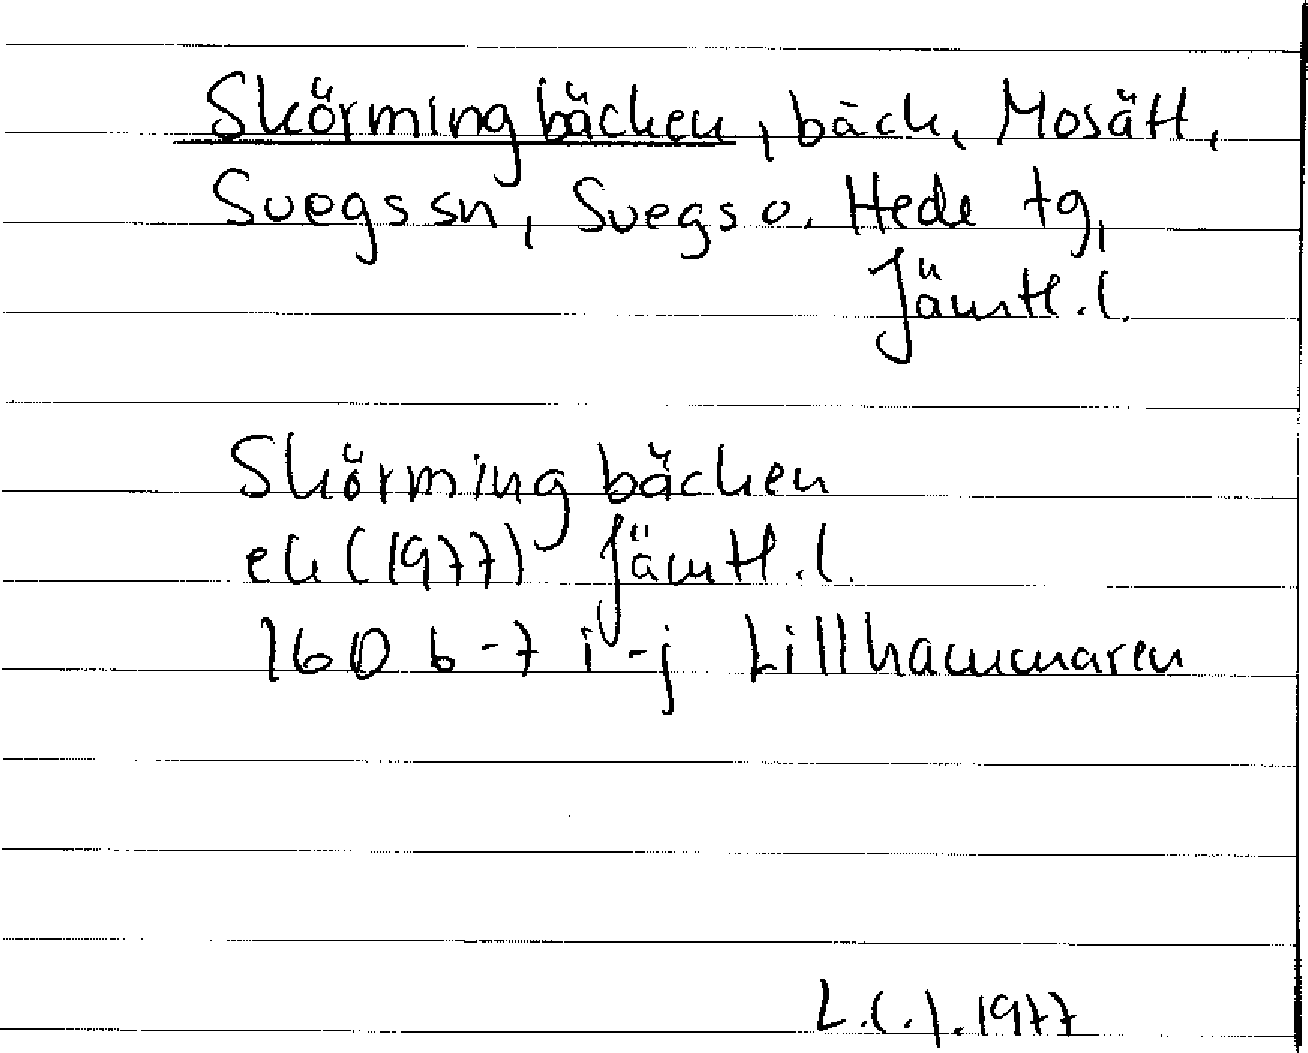 Skörmingbäcken, bäck, Mosätt,
Svegs sn, Svegs o. Hede tg,
Jämtl. l.
Skörmingbäcken
ek (1977) Jämtl. l.
16D 6-7 i-j Lillhammaren
1977